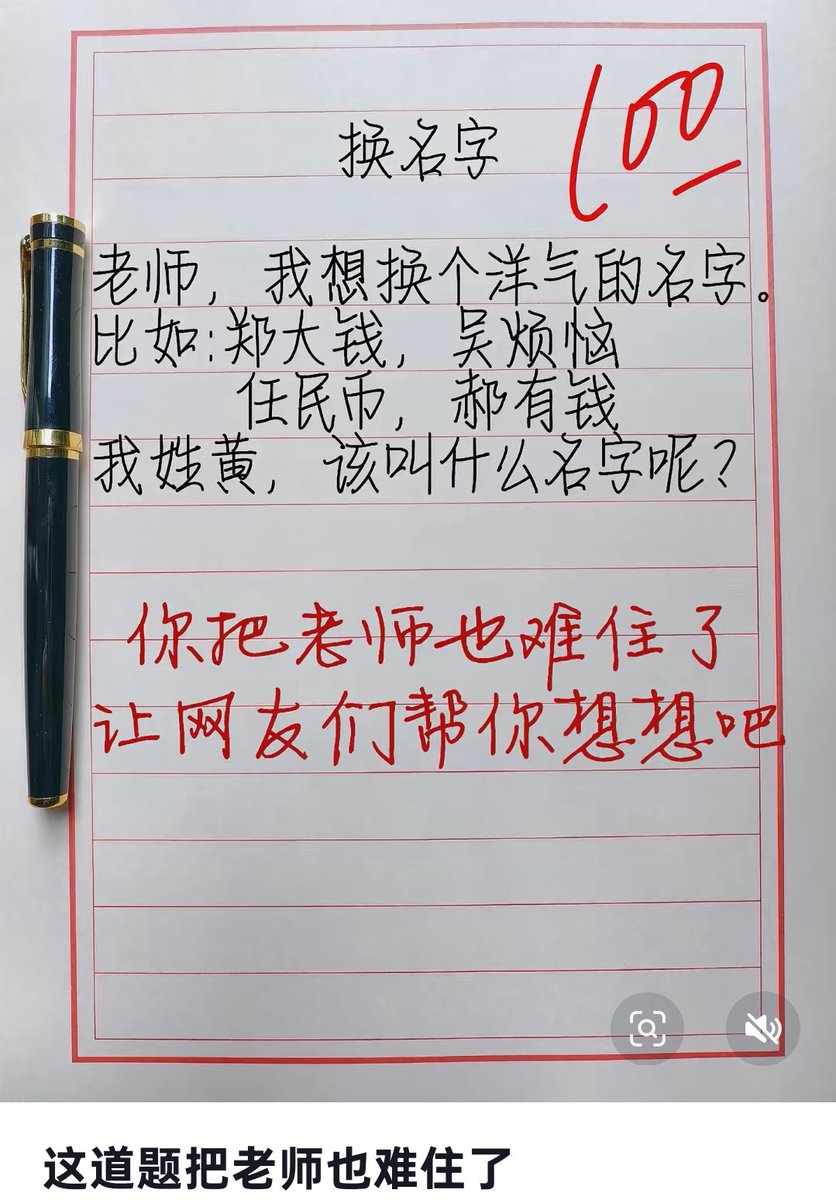 100
换名字
老师，我想换个洋气的名字。
比如:郑大钱，吴烦恼
任民币，郝有钱
我姓黄，该叫什么名字呢？
你把老师也难住了
让网友们帮你想想吧
这道题把老师也难住了